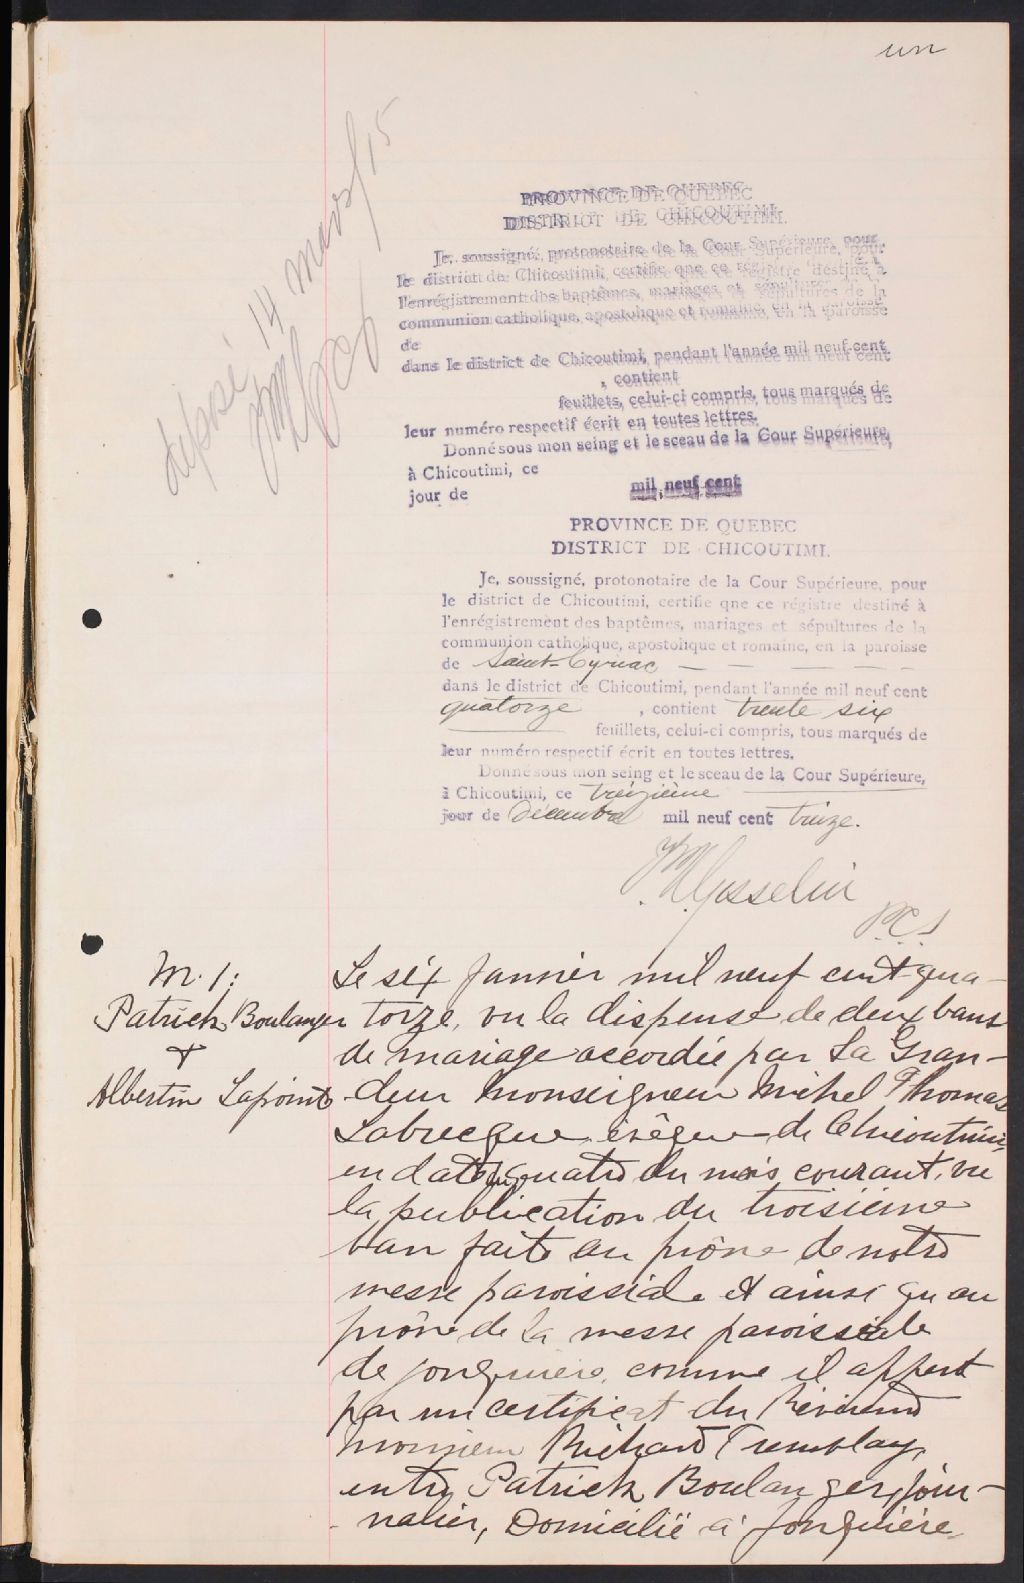 un
déposé 14 mars/15
PROVINCE DE QUEBEC
DISTRICT DE CHICOUTIMI.
Je, soussigné, protonotaire de la Cour Supérieure, pour
le district de Chicoutimi, certifie que ce régistre destiné à
l'enrégistrement des baptêmes, mariages et sépultures de la
communion catholique, apostolique et romaine, en la paroisse
de
dans le district de Chicoutimi, pendant l'année mil neuf cent
, contient
feuillets, celui-ci compris, tous marqués de
leur numéro respectif écrit en toutes lettres.
Donné sous mon seing et le sceau de la Cour Supérieure,
à Chicoutimi, ce
jour de mil neuf cent
PROVINCE DE QUEBEC
DISTRICT DE CHICOUTIMI.
Je, soussigné, protonotaire de la Cour Supérieure, pour
le district de Chicoutimi, certifie qne ce régistre destiné à
l'enrégistrement des baptêmes, mariages et sépultures de la
communion catholique, apostolique et romaine, en la paroisse
de Saint-Cyriac — — — — —
dans le district de Chicoutimi, pendant l'année mil neuf cent
quatorze , contient trente six
feuillets, celui-ci compris, tous marqués de
leur numéro respectif écrit en toutes lettres.
Donné sous mon seing et le sceau de la Cour Supérieure,
à Chicoutimi, ce treizième
jour de Décembre mil neuf cent treize.
Gosselin
P.C.S
M. 1:
Patrick Boulanger
+
Albertin Lapointe
Le six Janvier mil neuf cent qua-
torze, vu la dispense de deux bans
de mariage accordée par Sa Gran-
deur Monseigneur Michel Thomas
Labrecque, évêque de Chicoutimi,
en date du quatre du mois courant, vu
la publication du troisième
ban faite au prône de notre
messe paroissiale et ainsi qu au
prône de la messe paroissiale
de Jonquière, comme il appert
par un certificat du Révérend
Monsieur Richard Tremblay,
entre Patrick Boulanger, jour-
nalier, Domicilié à Jonquière